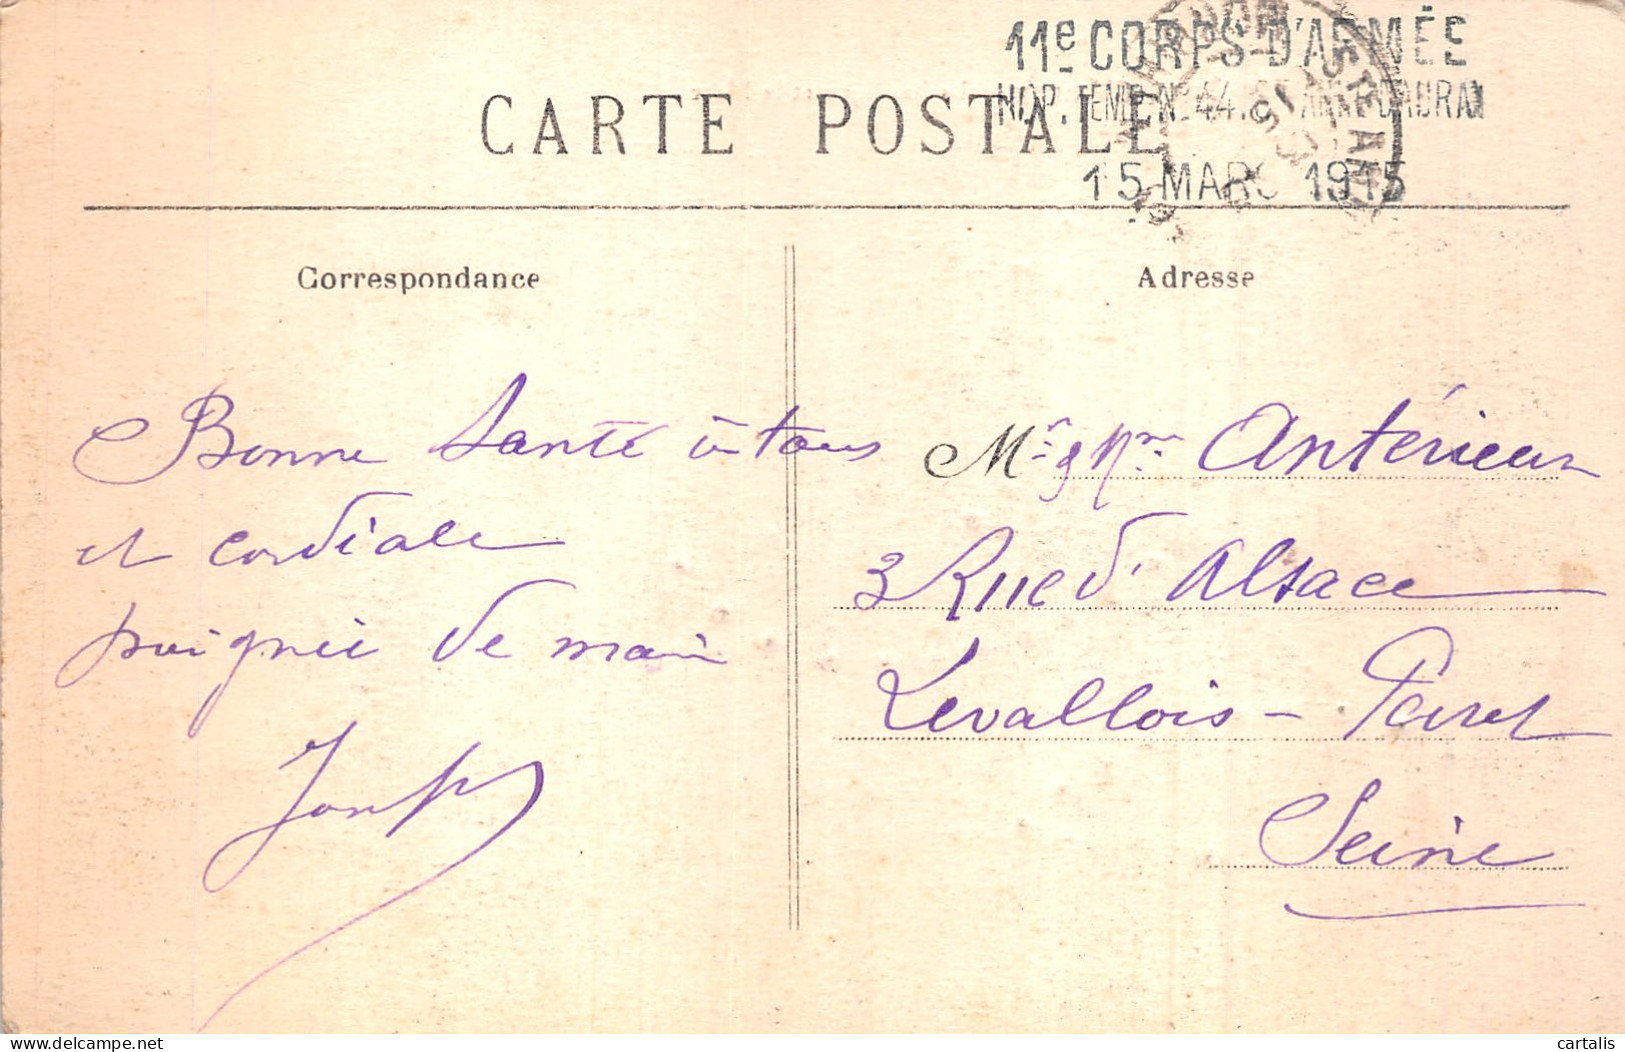 11e CORPS D'ARMÉE
HOP. TEMP. No 44. STE ANNE D'AURAY
15 MARS 1915
CARTE POSTALE
Correspondance
Adresse
Bonne Santé à tous
et cordiale
poignée de main
Mr & Mme Antérieur
3 Rue d'Alsace
Levallois - Perret
Seine
www.delcampe.net
cartalis